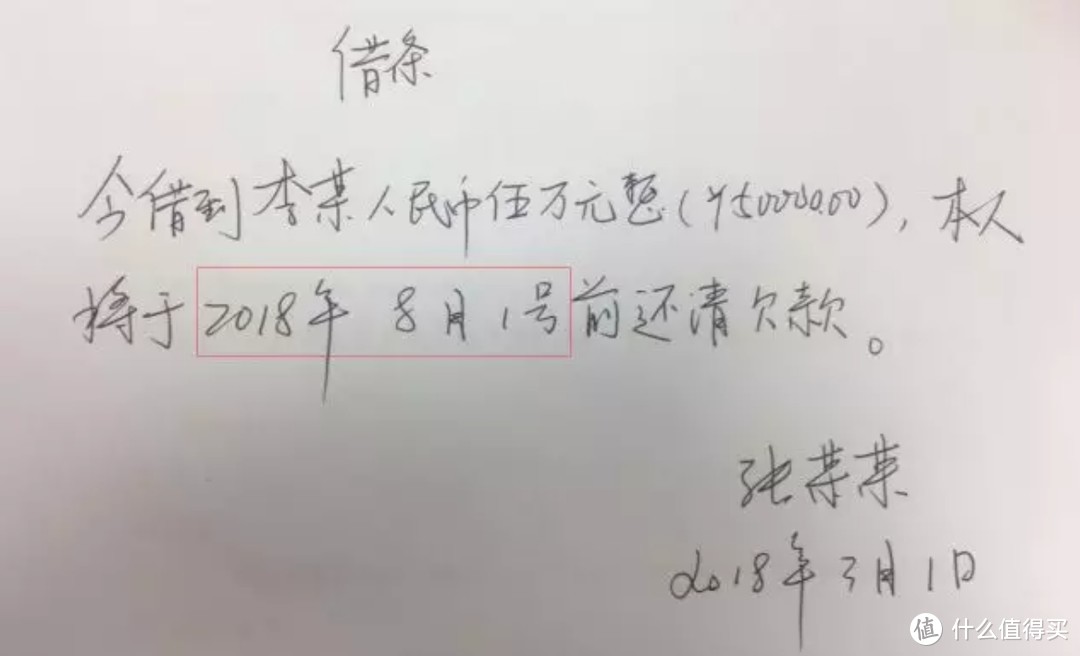 借条
今借到李某人民币伍万元整(¥50000.00),本人
将于2018年 8月 1号前还清欠款。
张某某
2018年3月1日
值 什么值得买